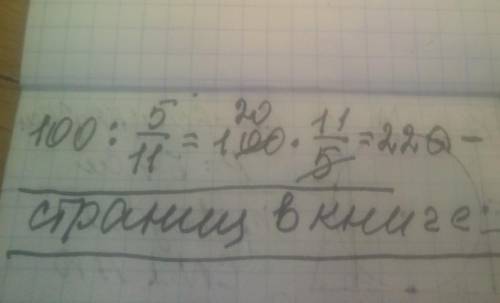 100 : 5/11 = 100 20 · 11/5 = 220 -
страниц в книге.